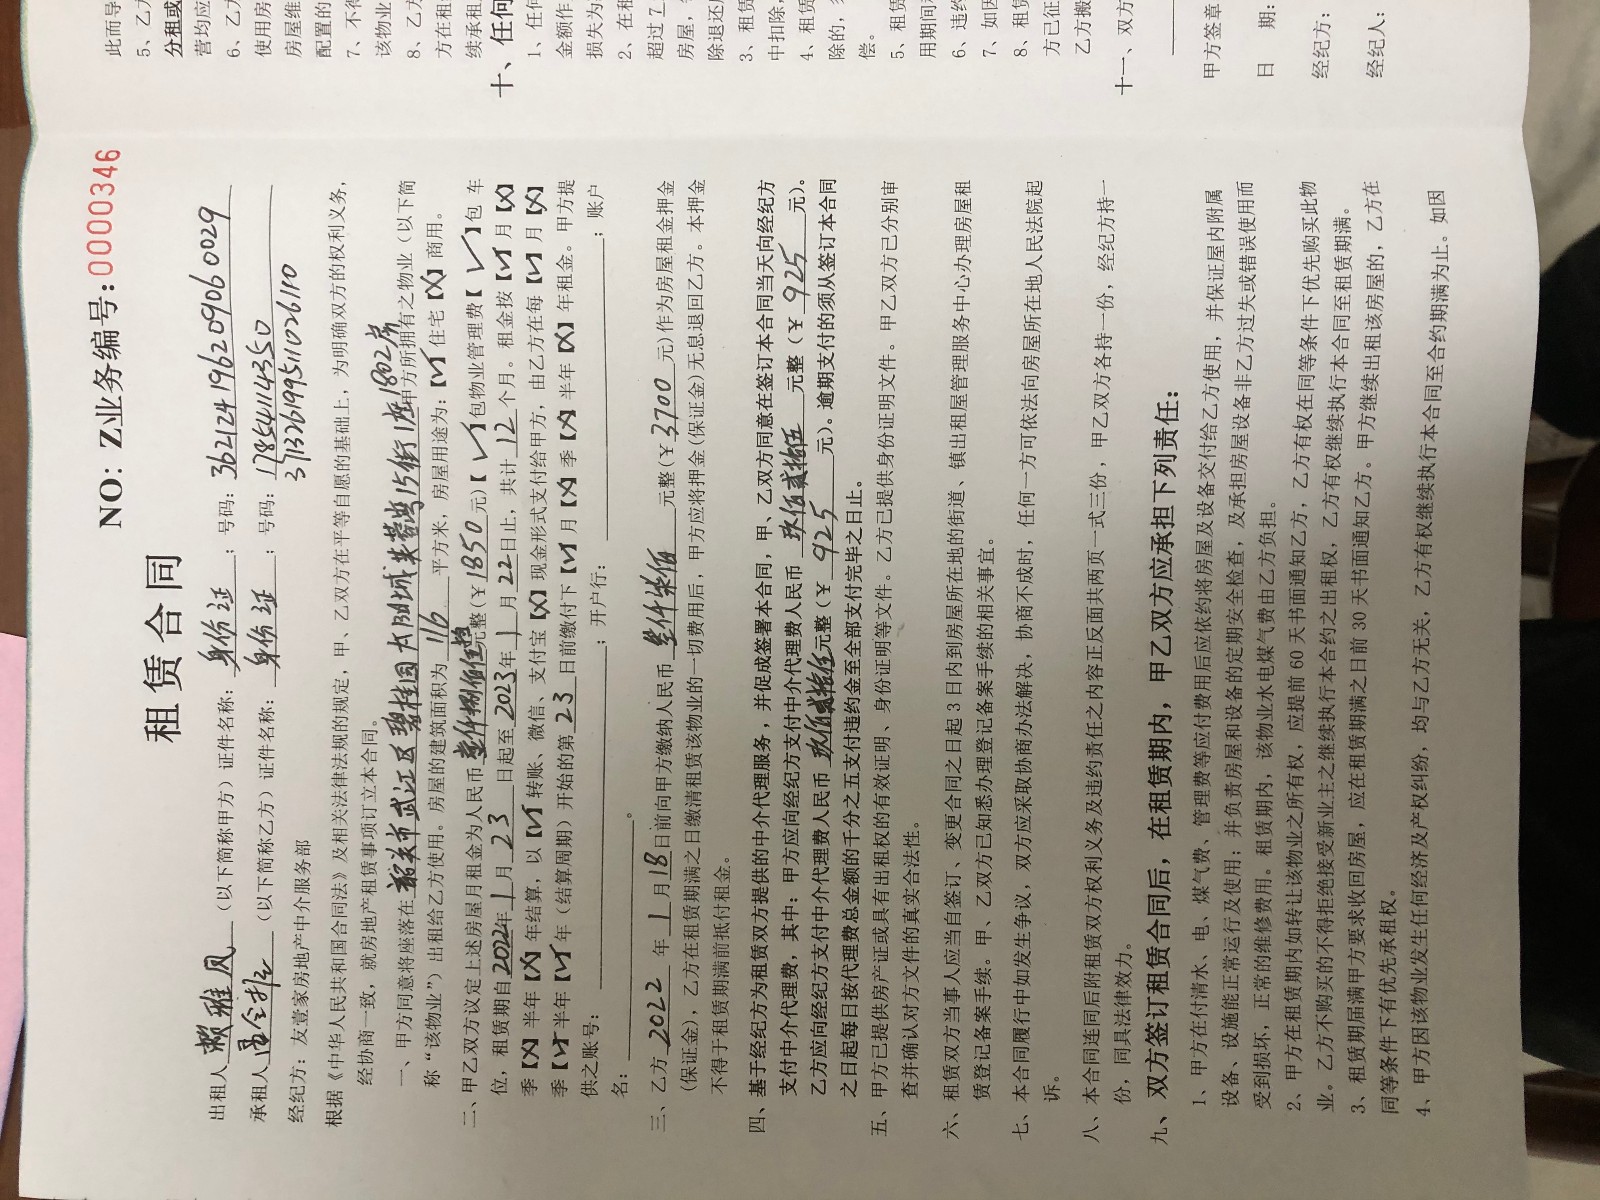 NO: Z业务编号:0000346
租赁合同
出租人赖雅凤（以下简称甲方）证件名称：身份证；号码：362124196209060029
承租人（以下简称乙方）证件名称：身份证；号码：17854114350
371326199511026110
经纪方：友壹家房地产中介服务部
根据《中华人民共和国合同法》及相关法律法规的规定，甲、乙双方在平等自愿的基础上，为明确双方的权利义务，
经协商一致，就房地产租赁事项订立本合同。
一、甲方同意将座落在韶关市武江区碧桂园太阳城芙蓉湾15街1座1802房甲方所拥有之物业（以下简
称“该物业”）出租给乙方使用。房屋的建筑面积为116平方米，房屋用途为：【√】住宅【X】商用。
二、甲乙双方议定上述房屋月租金为人民币壹仟捌佰伍拾元整(￥1850元)【√】包物业管理费【√】包 车
位，租赁期自2022年1月23日起至2023年1月22日止，共计12个月。租金按【√】月【X】
季【X】半年【X】年结算，以【√】转账、微信、支付宝【X】现金形式支付给甲方，由乙方在每【√】月【X】
季【√】半年【√】年（结算周期）开始的第23日前缴付下【√】月【X】季【X】半年【X】年租金。甲方提
供之账号：；开户行：；账户
名：。
三、乙方2022年1月18日前向甲方缴纳人民币叁仟柒佰元整(￥3700元)作为房屋租金押金
(保证金)，乙方在租赁期满之日缴清租赁该物业的一切费用后，甲方应将押金(保证金)无息退回乙方。本押金
不得于租赁期满前抵付租金。
四、基于经纪方为租赁双方提供的中介代理服务，并促成签署本合同，甲、乙双方同意在签订本合同当天向经纪方
支付中介代理费，其中：甲方应向经纪方支付中介代理费人民币玖佰贰拾伍元整（￥925元)。
乙方应向经纪方支付中介代理费人民币玖佰贰拾伍元整(￥925元)。逾期支付的须从签订本合同
之日起每日按代理费总金额的千分之五支付违约金至全部支付完毕之日止。
五、甲方已提供房产证或具有出租权的有效证明、身份证明等文件。乙方已提供身份证明文件。甲乙双方已分别审
查并确认对方文件的真实合法性。
六、租赁双方当事人应当自签订、变更合同之日起3日内到房屋所在地的街道、镇出租屋管理服务中心办理房屋租
赁登记备案手续。甲、乙双方已知悉办理登记备案手续的相关事宜。
七、本合同履行中如发生争议，双方应采取协商办法解决，协商不成时，任何一方可依法向房屋所在地人民法院起
诉。
八、本合同连同后附租赁双方权利义务及违约责任之内容正反面共两页一式三份，甲乙双方各持一份，经纪方持一
份，同具法律效力。
九、双方签订租赁合同后，在租赁期内，甲乙双方应承担下列责任：
1、甲方在付清水、电、煤气费、管理费等应付费用后应依约将房屋及设备交付给乙方使用，并保证屋内附属
设备、设施能正常运行及使用；并负责房屋和设备的定期安全检查，及承担房屋设备非乙方过失或错误使用而
受到损坏，正常的维修费用。租赁期内，该物业水电煤气费由乙方负担。
2、甲方在租赁期内如转让该物业之所有权，应提前60天书面通知乙方，乙方有权在同等条件下优先购买此物
业。乙方不购买的不得拒绝接受新业主之继续执行本合约之出租权，乙方有权继续执行本合同至租赁期满。
3、租赁期届满甲方要求收回房屋，应在租赁期满之日前30天书面通知乙方。甲方继续出租该房屋的，乙方在
同等条件下有优先承租权。
4、甲方因该物业发生任何经济及产权纠纷，均与乙方无关，乙方有权继续执行本合同至合约期满为止。如因
此而导
5、乙方
分租或
营均应
6、乙方
使用房
房屋维
配置的
7、不得
该物业
8、乙方
方在租
续承租
十、任何
1、任何
金额作
损失为
2、在租
超过7
房屋，
除退还
3、租赁
中扣除，
4、租赁
除的，
偿。
5、租赁
用期间
6、违约
7、如因
8、租赁
方已征
乙方搬
十一、双方
甲方签章
日 期：
经纪方：
经纪人：